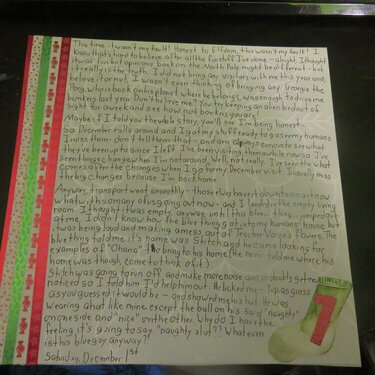 This time, it wasn't my fault! Honest to Elfdom, this wasn't my fault! I
know that's hard to believe after all the fun stuff I've done - alright, I thought
it was fun but opinions back on the North Pole might be different - but
it really is the truth. I did not bring any visitors with me this year and,
believe it or not, I wasn't even thinking of bringing any. Georgie the
Porg, who is back on his planet where he belongs, was enough to drive me
bonkers last year. Don't believe me? You try keeping an alien bird out of
sight for a week and see how not bonkers you are!
Maybe if I told you the whole story, you'll see I'm being honest.
So December rolls around and I got my stuff ready to go see my humans.
I miss them - don't tell them that - and am always curious to see what
they've been up to since I left. I've been visiting them a while now so I've
seen things change when I'm not around. Well, not really. I've seen the what
comes after the changes when I go for my December visit. I usually miss
the big changes because I'm back home.
Anyway, transport went smoothly - those elves have it down to an art now
what with so many of us going out now - and I landed in the empty living
room. I thought it was empty, anyway, until this blue thing jumped out
at me. I didn't know how the blue thing got into my humans' house, but
it was being loud and making a mess out of Tector Vance's towers. The
blue thing told me it's name was Stitch and he came looking for
examples of "Ohana" to bring to his home. (He never told me where his
home was though, come to think of it.)
Stitch was going to run off and make more noise and probably get me
noticed so I told him I'd help him out. He licked me - yup, as gross
as you guessed it would be - and showed me his hat. He was
wearing a hat like mine except the ball on his said "naughty"
on one side and "nice" on the other. Why do I have the
feeling it's going to say "naughty" a lot?? What even
is this blue guy anyway?!
Saturday, December 1st
1